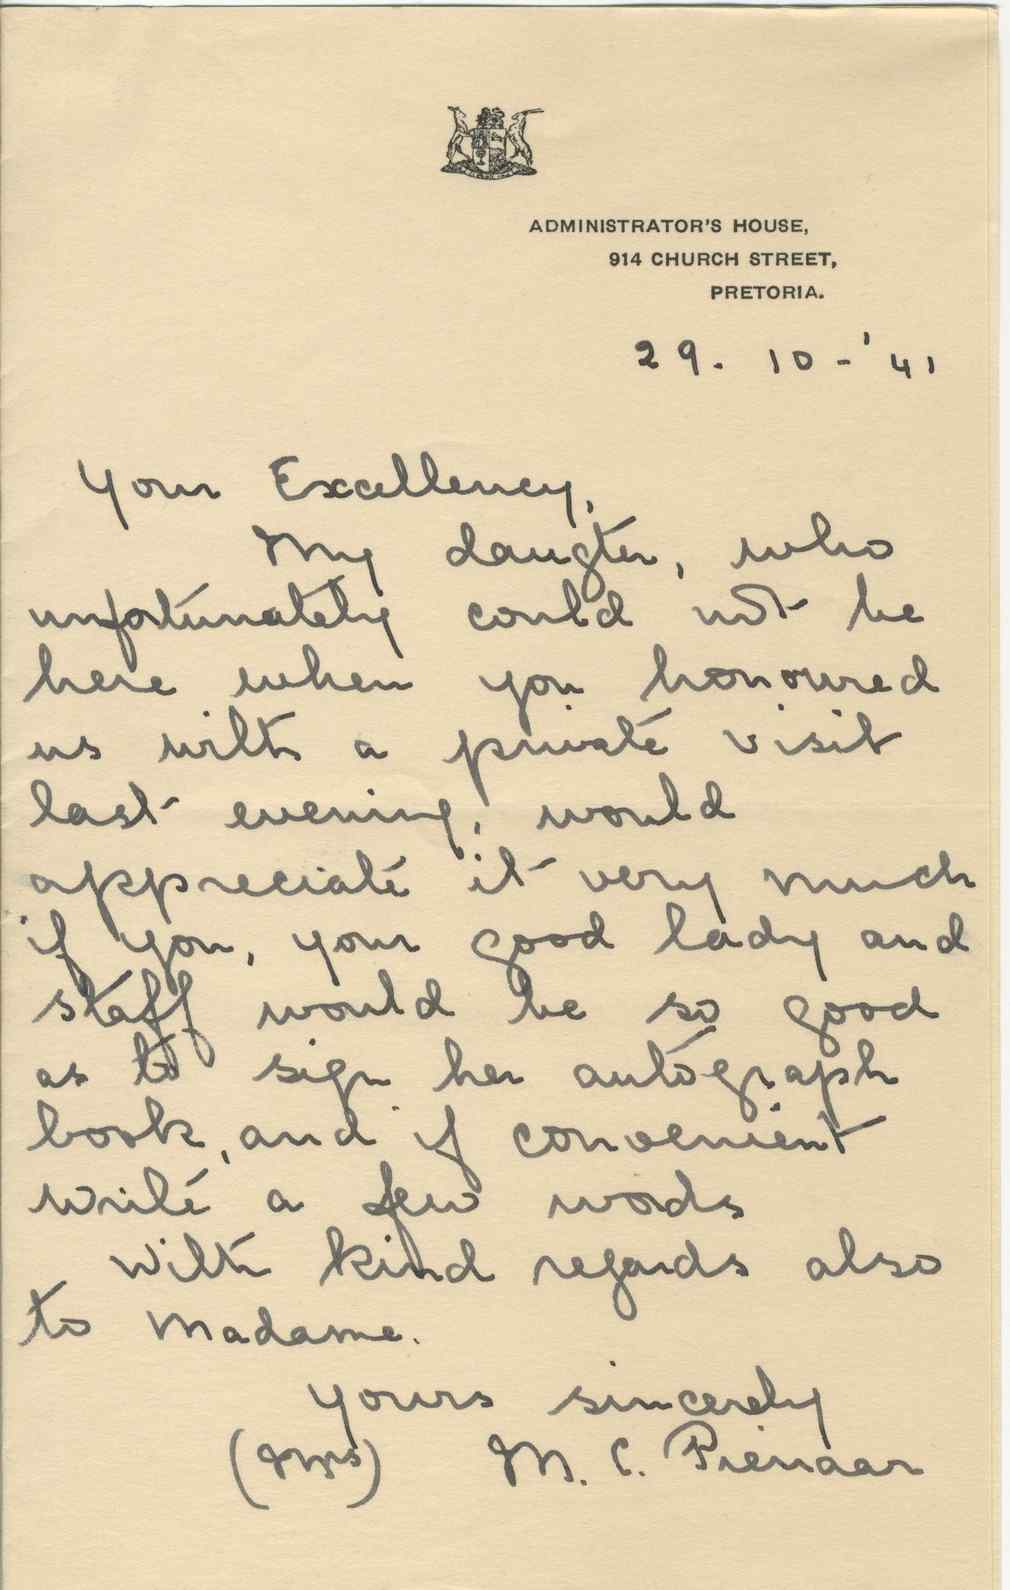 ADMINISTRATOR'S HOUSE,
914 CHURCH STREET,
PRETORIA.
29. 10-'41
Your Excellency,
My daugter, who
unfortunately could not be
here when you honoured
us with a private visit
last evening, would
appreciate it very much
if you, your good lady and
staff would be so good
as to sign her autograph
book, and if convenient
write a few words
With kind regards also
to Madame.
Yours sincerely
(Mrs) M. C. Pienaar